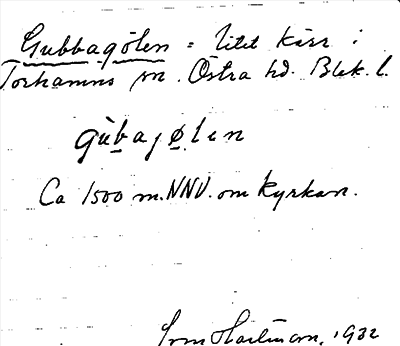 Gubbagölen = litet kärr i
Torhamns sn. Östra hd. Blek. l.
gùbajø̀len
Ca 1500 m. NNV. om kyrkan.
Hartman, 1932